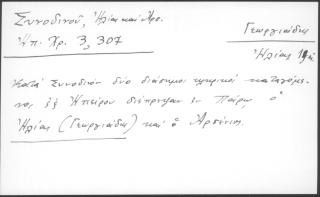 Συνοδινοῦ, Ἠλίας καὶ Ἀρσ.
Ἠπ. Χρ. 3, 307
Γεωργιάδης
Ἠλίας
Κατὰ Συνοδινὸν δύο διάσημοι κληρικοὶ καταγόμε-
νοι ἐξ Ἠπείρου διέπρεψαν ἐν Πάρῳ ὁ
Ἠλίας (Γεωργιάδης) καὶ ὁ Ἀρσένιος.